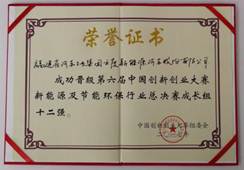 荣誉证书
福建省汽车工业集团云度新能源汽车股份有限公司
成功晋级第六届中国创新创业大赛
新能源及节能环保行业总决赛成长组
十二强。
中国创新创业大赛组委会
二〇一七年